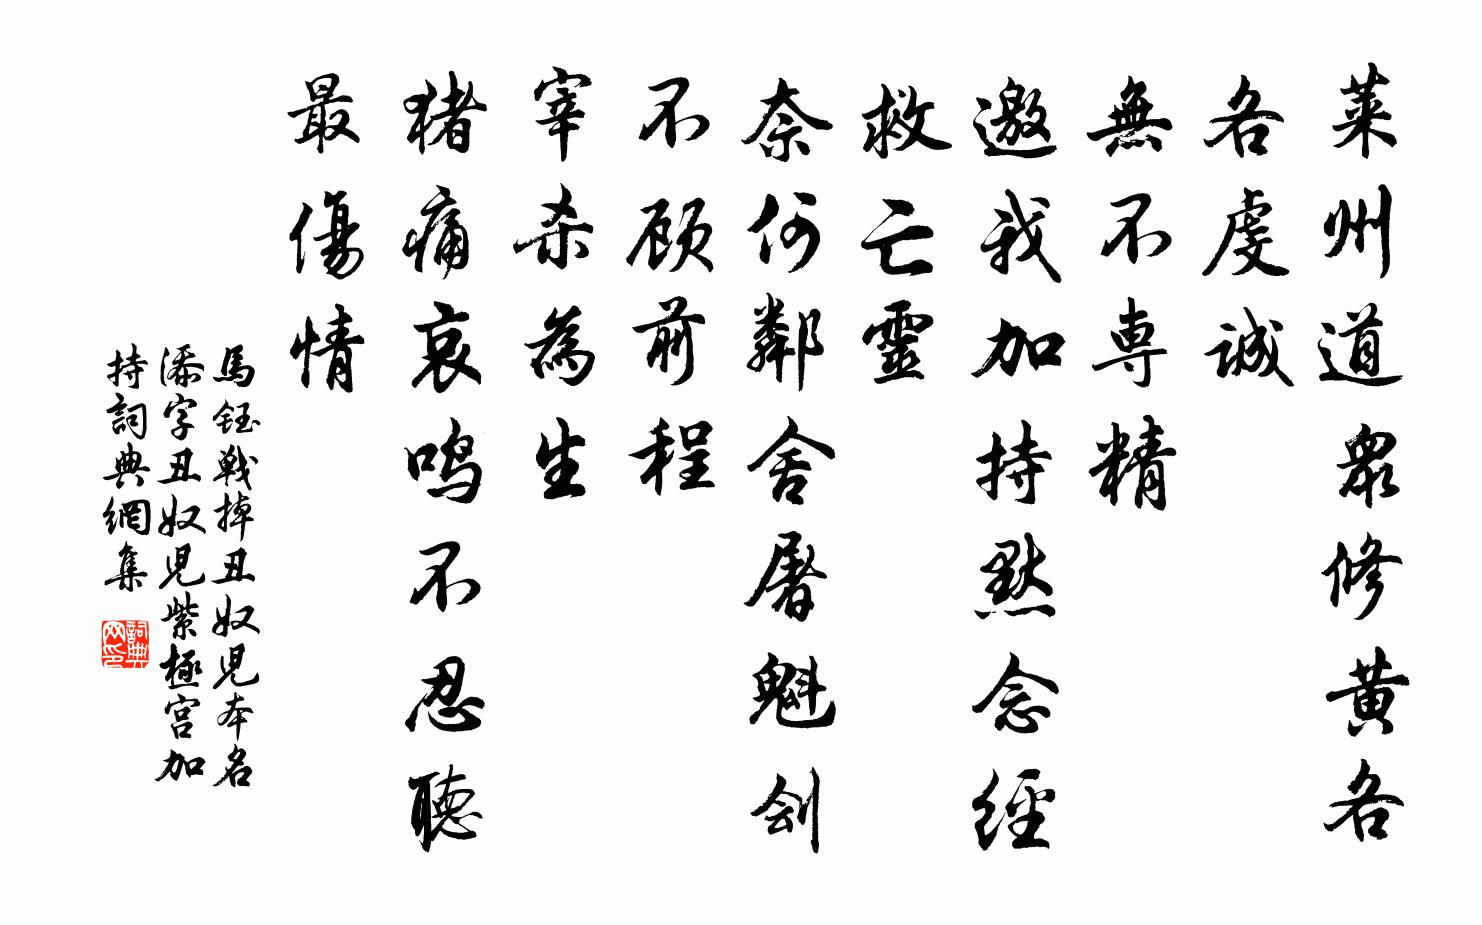 萊州道眾修黄各
各虔誠
無不専精
邀我加持默念經
救亡靈
奈何鄰舍屠魁刽
不顾前程
宰杀為生
猪痛哀鸣不忍聽
最傷情
馬鈺戦掉丑奴児本名
添字丑奴児紫極宫加
持詞典網集
詞典网印